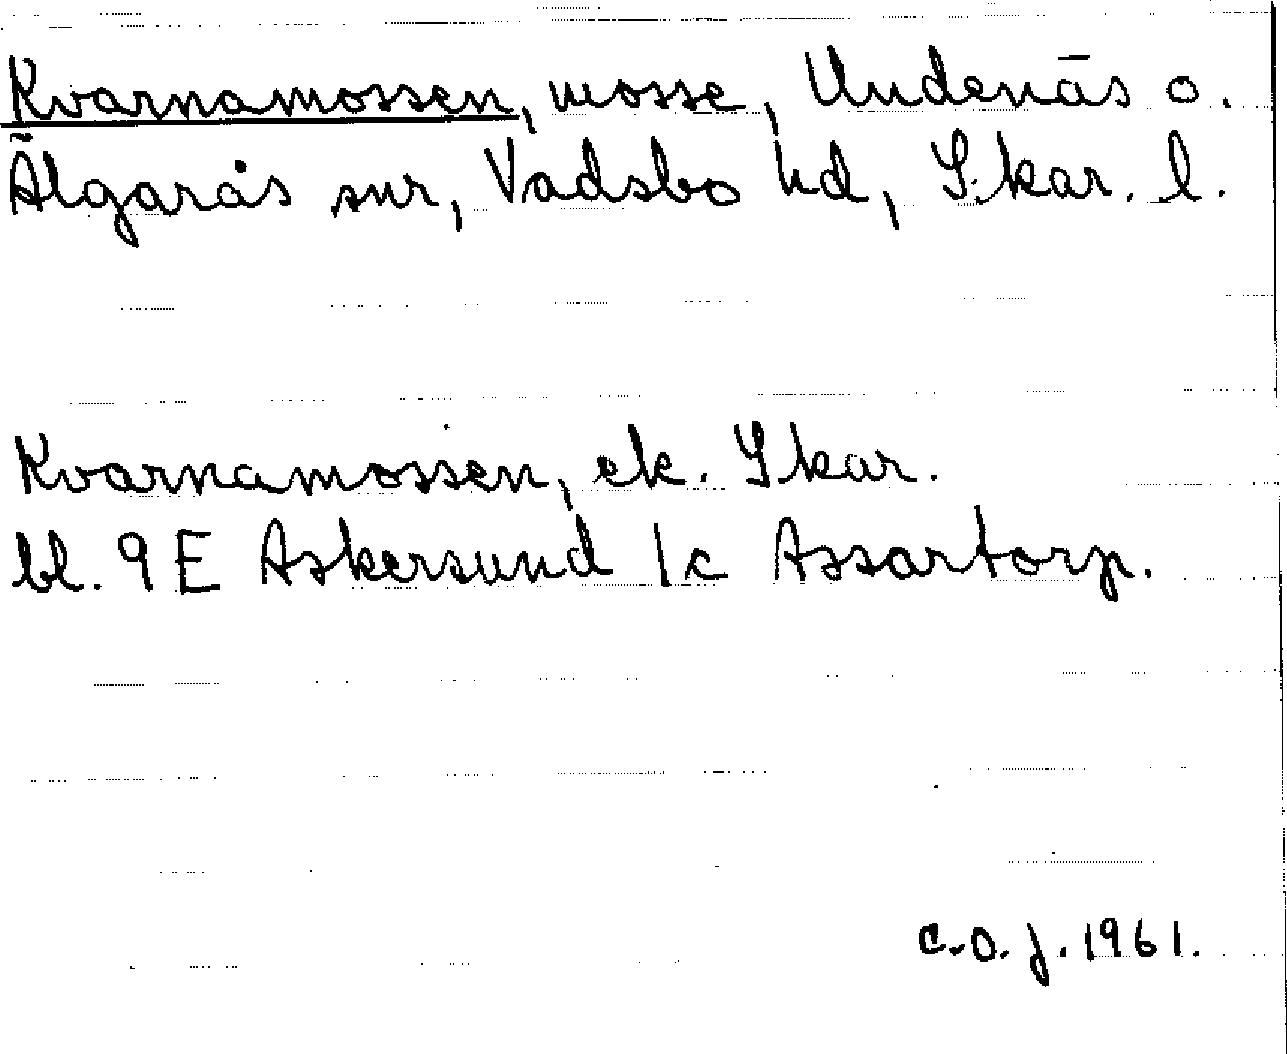 Kvarnamossen, mosse, Undenäs o.
Älgarås snr, Vadsbo hd, Skar. l.
Kvarnamossen, ek. Skar.
bl. 9 E Askersund 1c Assartorp.
C.O.J. 1961.